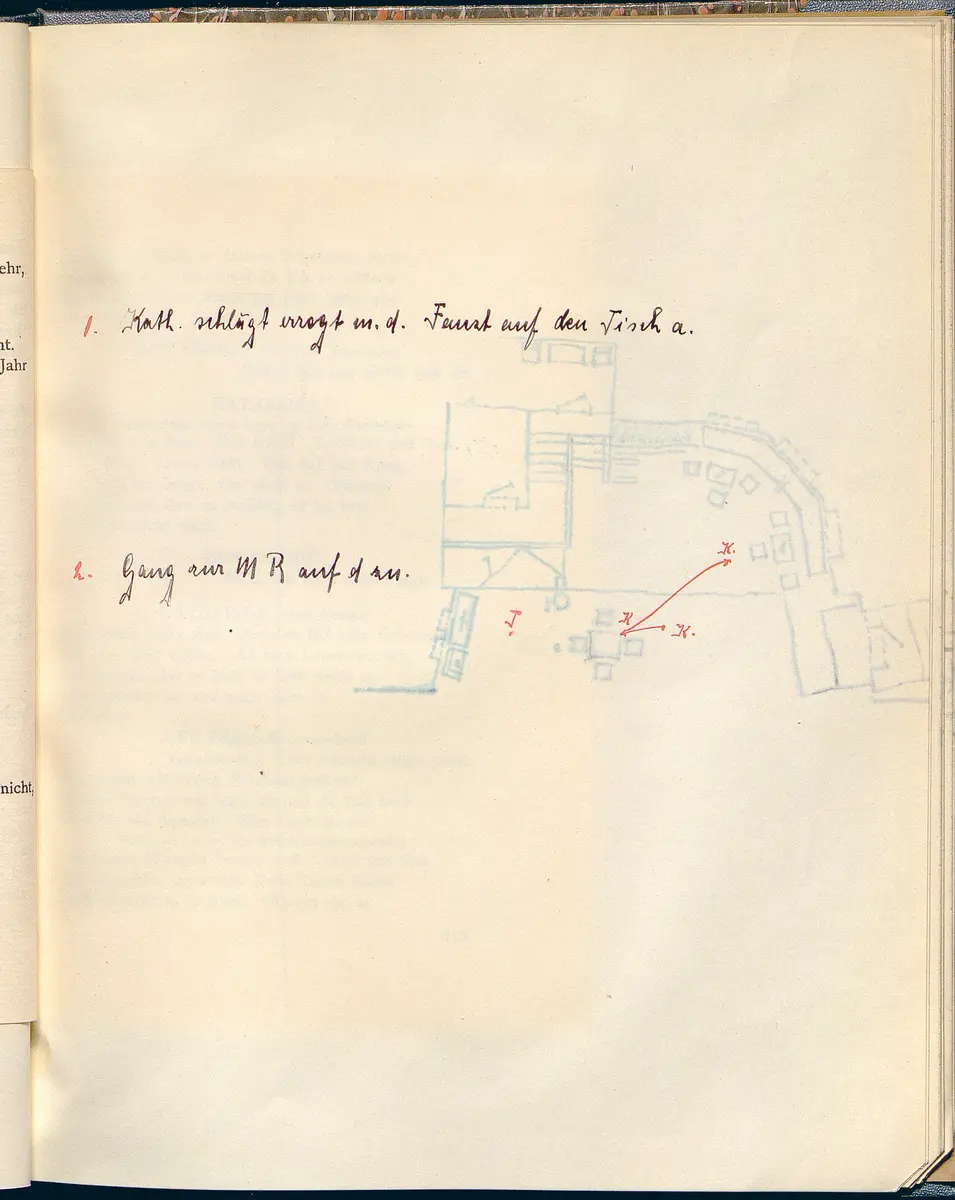 ehr,
nt.
Jahr
nicht,
1. Kath. schlägt erregt m. d. Faust auf den Tisch a.
2. Gang zur M R auf d zu.
K.
J
K
K.